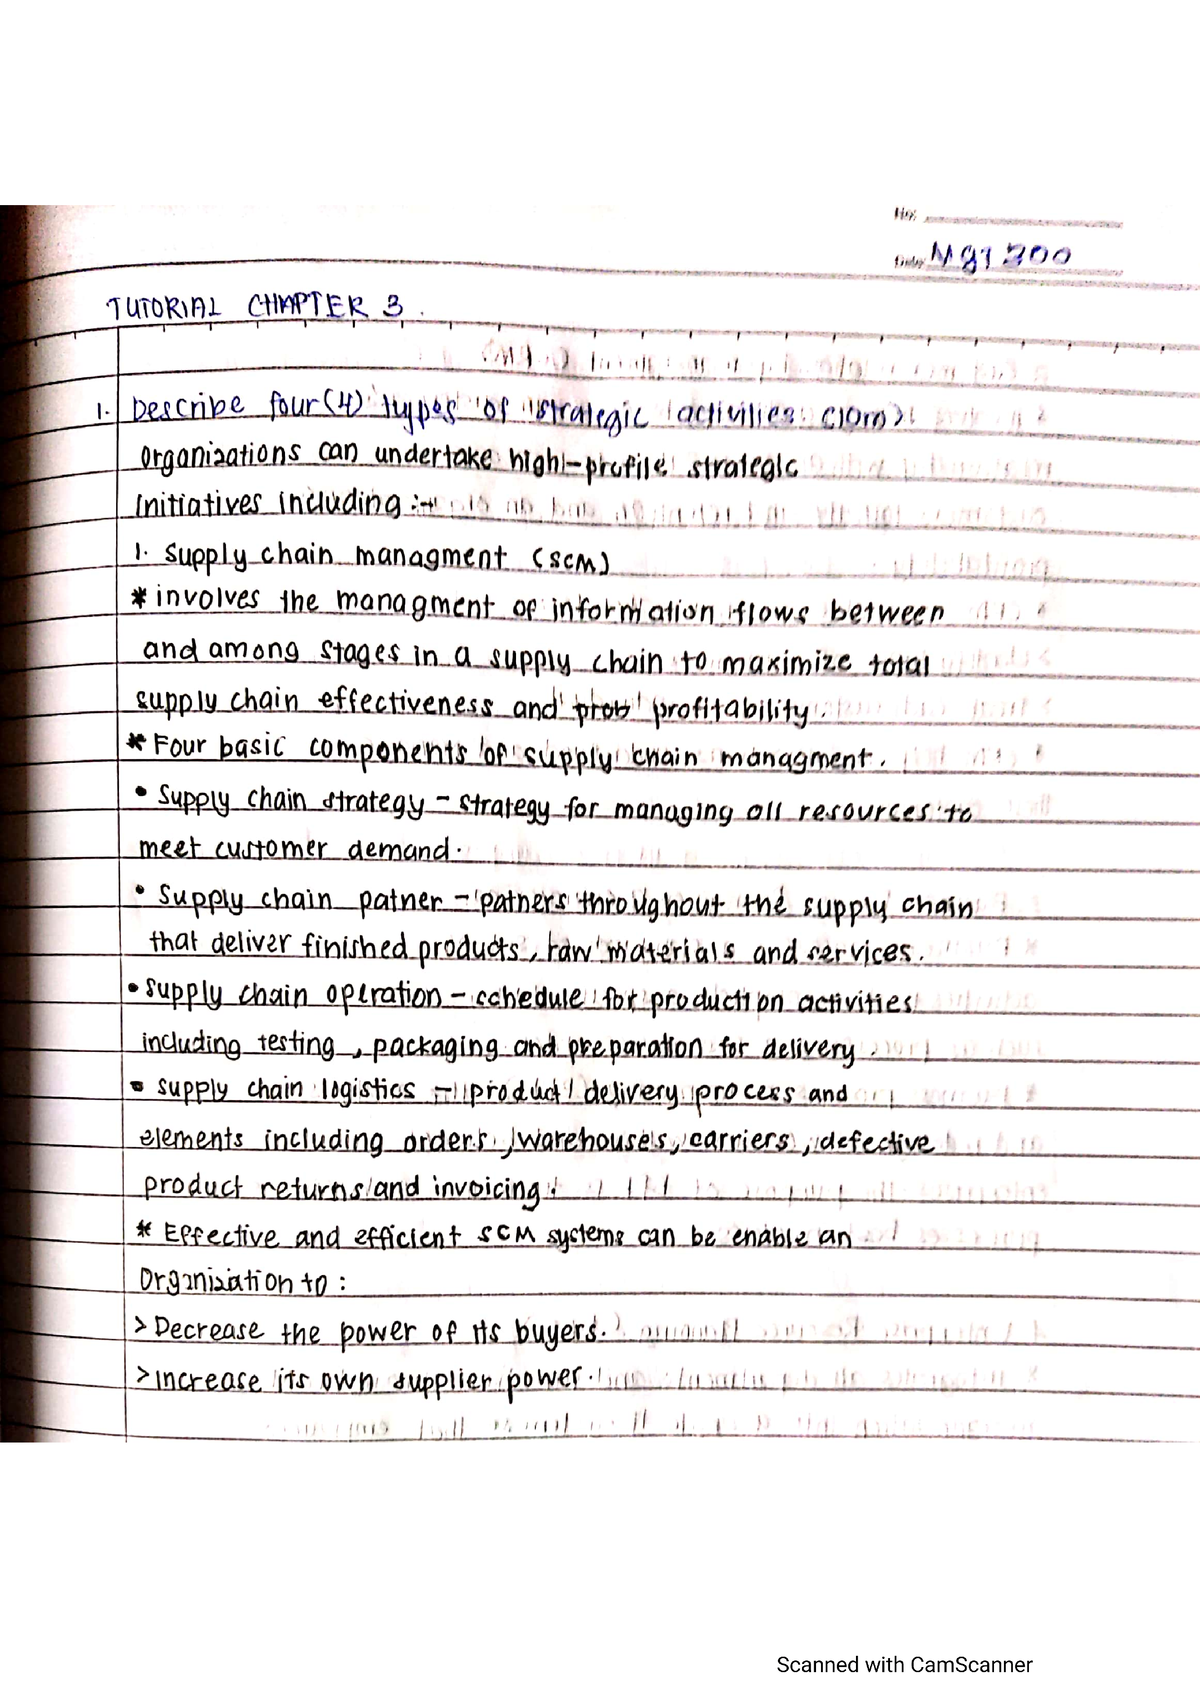 No:
Date: Mgt 300
TUTORIAL CHAPTER 3.
1. Describe four (4) types of strategic activities (10m).
Organisations can undertake high-profile strategic
Initiatives including :-
1. Supply chain managment (SCM)
* involves the managment of information flows between
and among stages in a supply chain to maximize total
supply chain effectiveness and prob profitability.
* Four basic components of supply chain managment.
• Supply chain strategy - strategy for managing all resources to
meet customer demand.
• Supply chain patner - patners throughout the supply chain
that deliver finished products, raw materials and services.
• supply chain operation - schedule for production activities
including testing, packaging and preparation for delivery.
• supply chain logistics - product delivery process and
elements including orders, warehouses, carriers, defective
product returns and invoicing.
* Effective and efficient SCM systems can be enable an
Organisation to :
> Decrease the power of its buyers.
> increase its own supplier power.
Scanned with CamScanner